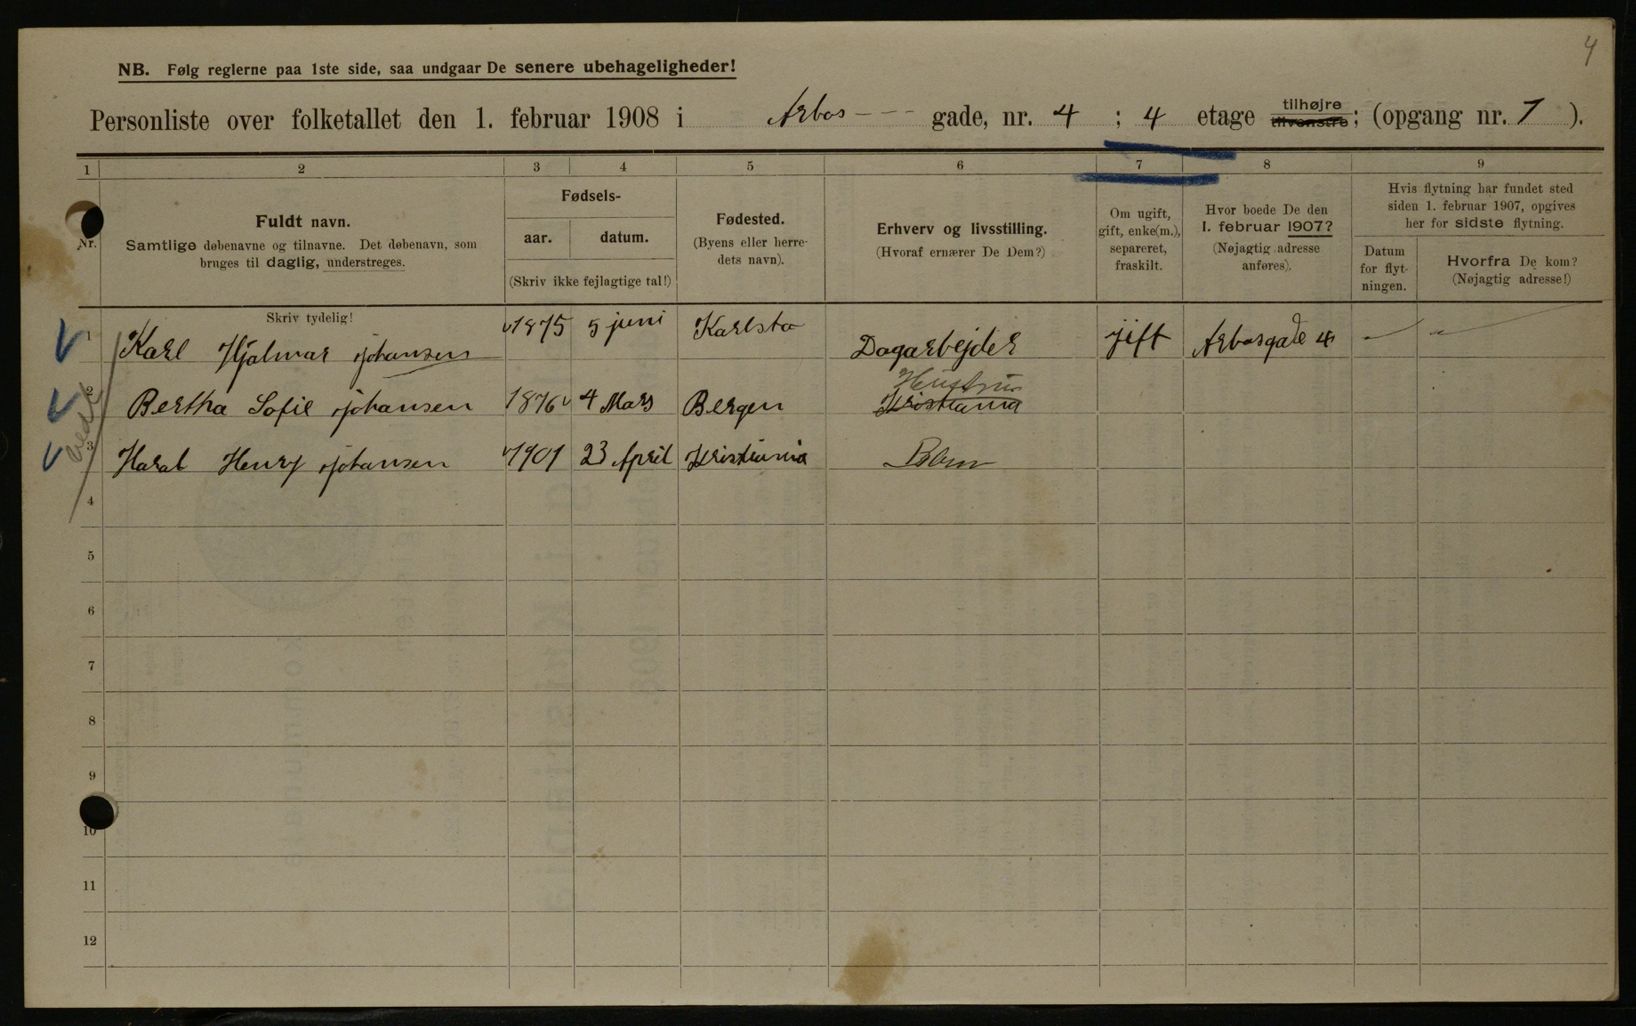 4
NB. Følg reglerne paa 1ste side, saa undgaar De senere ubehageligheder!
Personliste over folketallet den 1. februar 1908 i Arbos - - - gade, nr. 4 ; 4 etage tilhøjre tilvenstre; (opgang nr. 1 ).
1 2 3 4 5 6 7 8 9
Nr.
Fuldt navn.
Samtlige døbenavne og tilnavne. Det døbenavn, som
bruges til daglig, understreges.
Fødsels-
aar. datum.
(Skriv ikke fejlagtige tal!)
Fødested.
(Byens eller herre-
dets navn).
Erhverv og livsstilling.
(Hvoraf ernærer De Dem?)
Om ugift,
gift, enke(m.),
separeret,
fraskilt.
Hvor boede De den
1. februar 1907?
(Nøjagtig adresse
anføres).
Hvis flytning har fundet sted
siden 1. februar 1907, opgives
her for sidste flytning.
Datum
for flyt-
ningen.
Hvorfra De kom?
(Nøjagtig adresse!)
Skriv tydelig!
1 Karl Hjalmar Johansen 1875 5 juni Karlsta Dagarbejder jift Arbosgade 4 — —
Hustru
2 Bertha Sofie Johansen 1876 4 Mars Bergen Kristiania
3 Haral Henry Johansen 1901 23 April Kristiania Barn
4
5
6
7
8
9
10
11
12